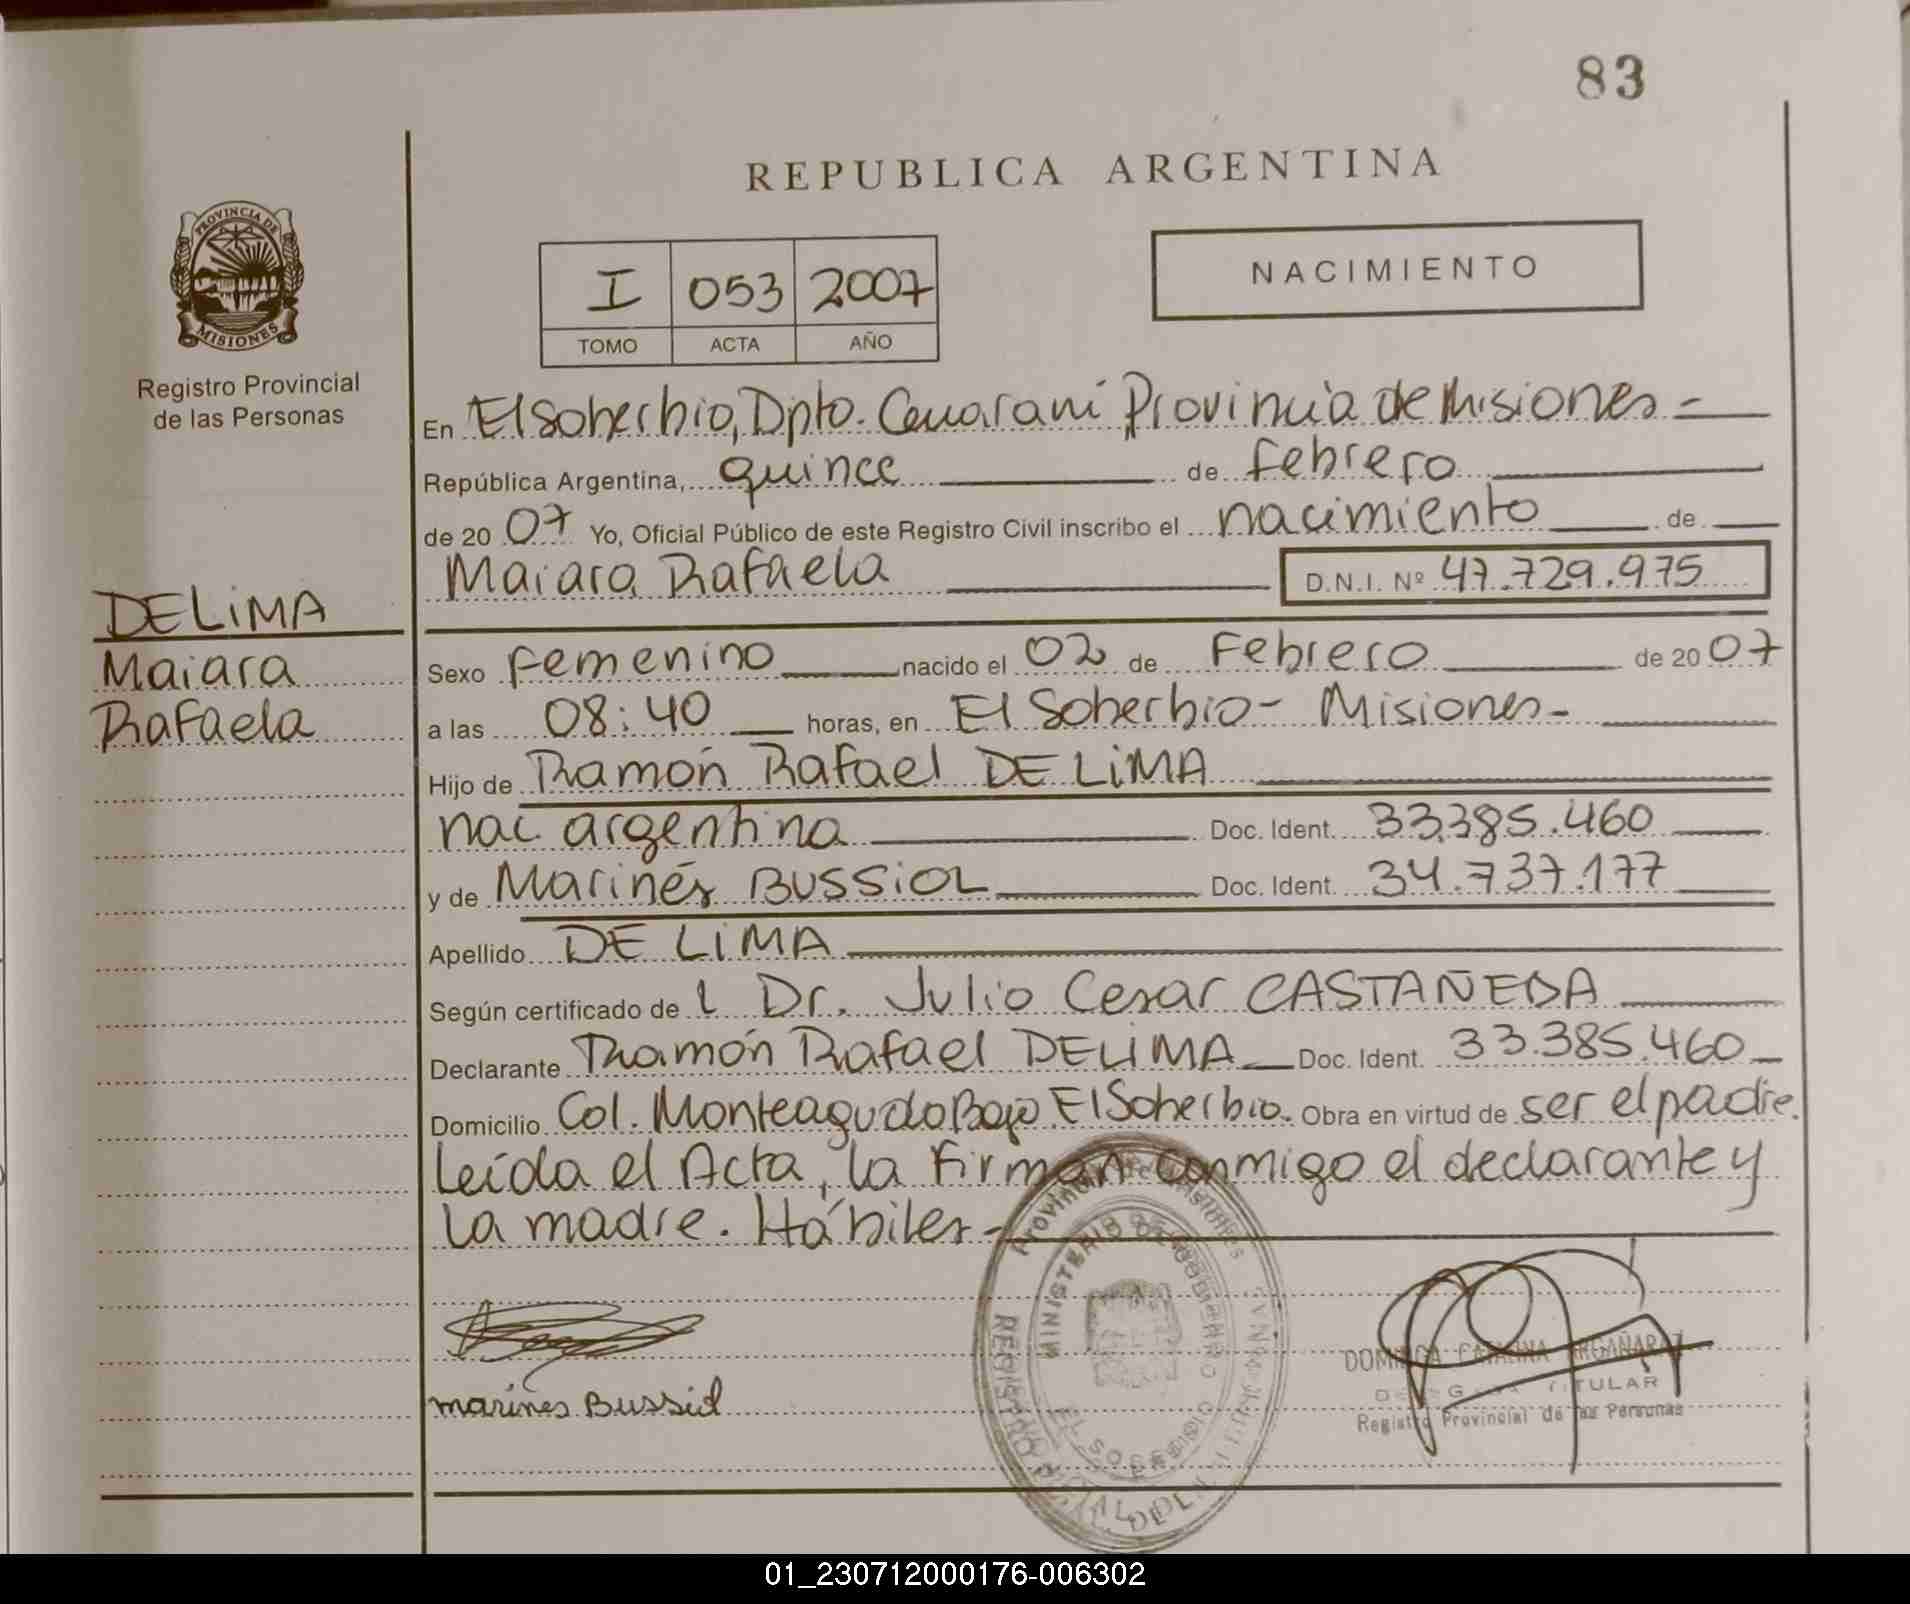 83
REPUBLICA ARGENTINA
PROVINCIA DE
MISIONES
Registro Provincial
de las Personas
I 053 2007
TOMO ACTA AÑO
NACIMIENTO
En El Soberbio, Dpto. Guaraní Provincia de Misiones -
República Argentina, quince de febrero
de 20 07 Yo, Oficial Público de este Registro Civil inscribo el nacimiento de
Maiara Rafaela D.N.I. Nº 47.729.975
DE LIMA
Maiara
Rafaela
Sexo femenino nacido el 02 de Febrero de 20 07
a las 08:40 horas, en El Soberbio - Misiones -
Hijo de Ramón Rafael DE LIMA
nac. argentina Doc. Ident. 33.385.460
y de Marinés BUSSIOL Doc. Ident. 34.737.177
Apellido DE LIMA
Según certificado de l Dr. Julio Cesar CASTAÑEDA
Declarante Ramón Rafael DE LIMA Doc. Ident. 33.385.460
Domicilio Col. Monteagudo Bajo El Soberbio. Obra en virtud de ser el padre.
Leída el Acta, la firman conmigo el declarante y
la madre. Hábiles -
marines Bussiol
Provincia de Misiones
MINISTERIO DE GOBIERNO
EL SOBERBIO
DOMINGA CATALINA ARGAÑARAZ
TITULAR
Registro Provincial de las Personas
01_230712000176-006302